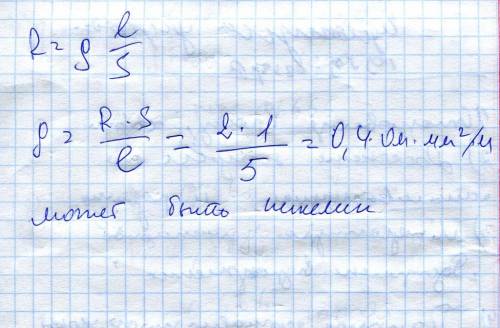 R = ρ l/S
ρ = R·S/l = 2·1/5 = 0,4 Ом·мм²/м
может быть никелин